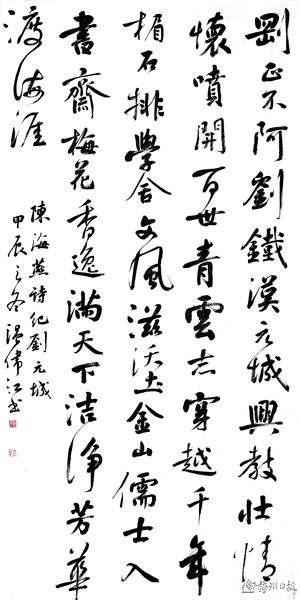 剛正不阿劉鐵漢元城興教壯情
懷噴開百世青雲志穿越千年
楣石排學舍文風滋沃土金山儒士入
書齋梅花香逸滿天下洁淨芳華
渡海涯
陳海燕詩紀劉元城
甲辰之冬温偉江書
梅州日报